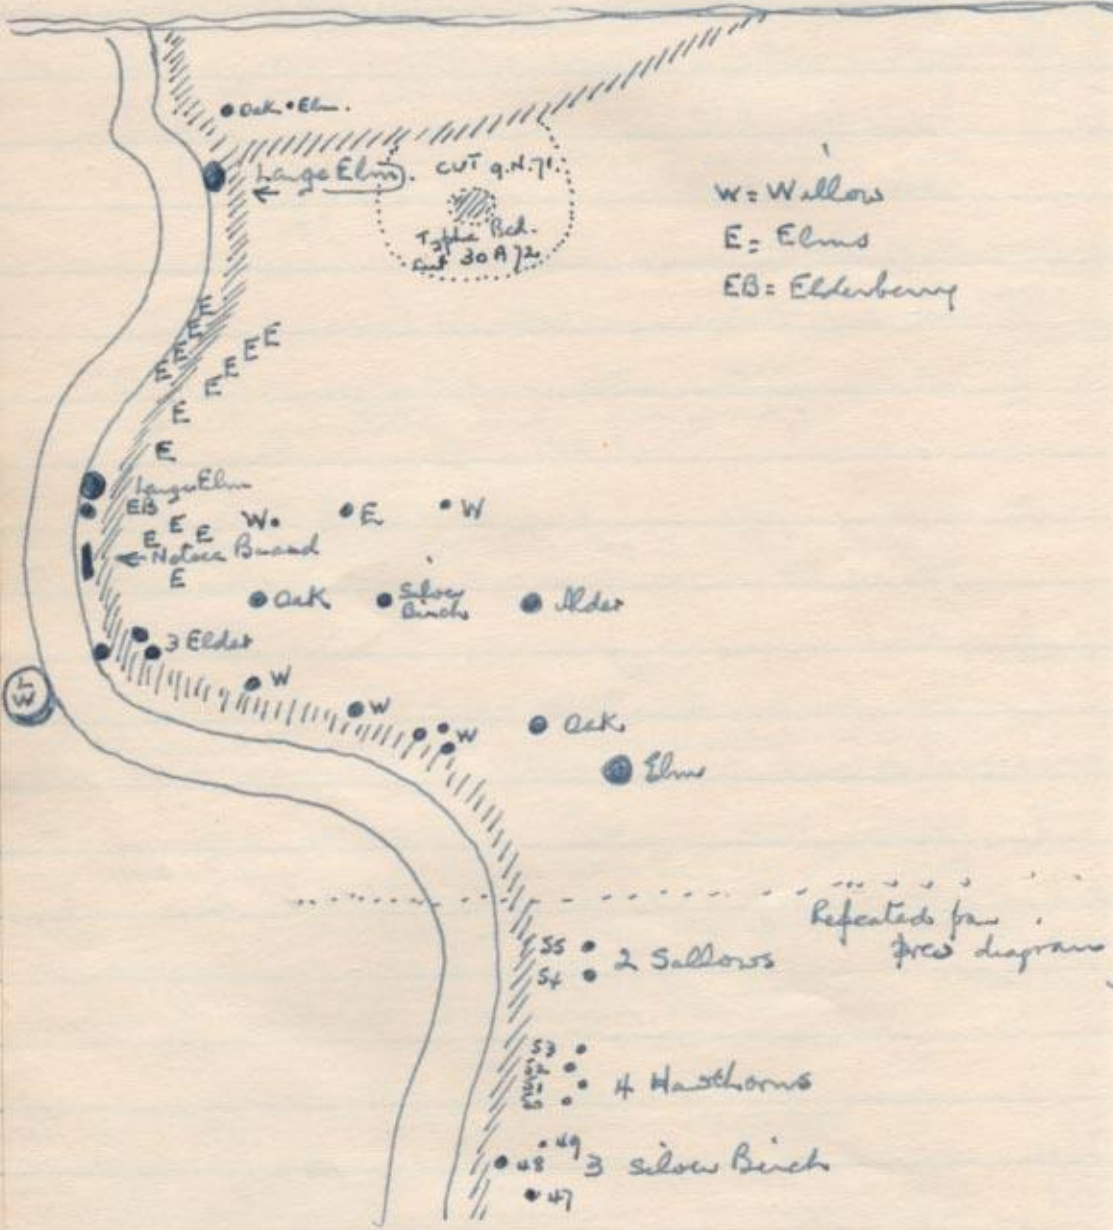 Oak • Elm.
Large Elm.
CUT 9.N.71.
Typha Bed.
Cut 30 A 72
W = Willow
E = Elms
EB = Elderberry
E
E
E
E
E
E
E
E
E
E
Large Elm
EB
E
E
E
W
E
W
← Notice Board
E
Oak
Silver
Birch
Alder
3 Elder
W
L
W
W
W
Oak
Elm
Repeated
prev diagram
55
54
2 Sallows
53
4 Hawthorns
49
48
3 Silver Birch
47